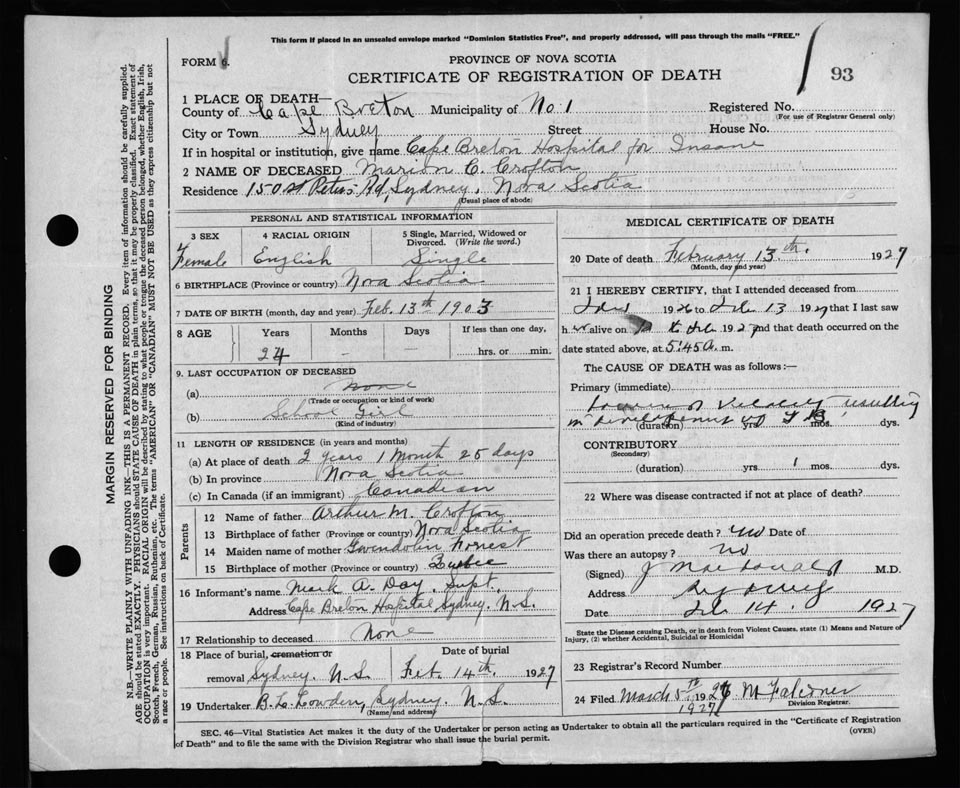 This form if placed in an unsealed envelope marked "Dominion Statistics Free", and properly addressed, will pass through the mails "FREE."
FORM 6.
PROVINCE OF NOVA SCOTIA
CERTIFICATE OF REGISTRATION OF DEATH
93
1 PLACE OF DEATH—
County of Cape Breton Municipality of No. 1 Registered No.
(For use of Registrar General only)
City or Town Sydney Street House No.
If in hospital or institution, give name Cape Breton Hospital for Insane
2 NAME OF DECEASED Marion C. Crofton
Residence 150 St Peters Rd, Sydney, Nova Scotia
(Usual place of abode)
PERSONAL AND STATISTICAL INFORMATION
3 SEX
Female
4 RACIAL ORIGIN
English
5 Single, Married, Widowed or
Divorced. (Write the word.)
Single
6 BIRTHPLACE (Province or country) Nova Scotia
7 DATE OF BIRTH (month, day and year) Feb. 13th 1903
8 AGE Years Months Days If less than one day,
24 - hrs. or min.
9. LAST OCCUPATION OF DECEASED
(a) None
(Trade or occupation or kind of work)
(b) School Girl
(Kind of industry)
11 LENGTH OF RESIDENCE (in years and months)
(a) At place of death 2 years 1 Month 25 days
(b) In province Nova Scotia
(c) In Canada (if an immigrant) Canadian
Parents
12 Name of father Arthur M. Crofton
13 Birthplace of father (Province or country) Nova Scotia
14 Maiden name of mother Gwendolin Forrest
15 Birthplace of mother (Province or country)
16 Informant's name Mark A. Day, Supt.
Address Cape Breton Hospital Sydney. N.S.
17 Relationship to deceased None
18 Place of burial, cremation or
removal Sydney. N.S.
Date of burial
Feb. 14th. 1927
19 Undertaker B. L. Lowden, Sydney. N.S.
(Name and address)
MEDICAL CERTIFICATE OF DEATH
20 Date of death February 13th. 1927
(Month, day and year)
21 I HEREBY CERTIFY, that I attended deceased from
1926 to Feb 13 1927 that I last saw
h er alive on Feb 1927 and that death occurred on
date stated above, at 5:45 a. m.
The CAUSE OF DEATH was as follows:—
Primary (immediate)
of Vitality resulting
in development of TB
(duration) yrs. mos. dys.
CONTRIBUTORY
(Secondary)
(duration) yrs. mos. dys.
22 Where was disease contracted if not at place of death?
Did an operation precede death? no Date of
Was there an autopsy? no
(Signed) J MacDonald M.D.
Address Sydney
Date Feb 14. 1927
State the Disease causing Death, or in death from Violent Causes, state (1) Means and Nature of
Injury, (2) whether Accidental, Suicidal or Homicidal
23 Registrar's Record Number
24 Filed March 5th 1927 M Falconer
1927 Division Registrar.
SEC. 46—Vital Statistics Act makes it the duty of the Undertaker or person acting as Undertaker to obtain all the particulars required in the "Certificate of Registration
of Death" and to file the same with the Division Registrar who shall issue the burial permit.
(OVER)
MARGIN RESERVED FOR BINDING
N.B.—WRITE PLAINLY WITH UNFADING INK—THIS IS A PERMANENT RECORD. Every item of information should be carefully supplied.
AGE should be stated EXACTLY. PHYSICIANS should STATE CAUSE OF DEATH in plain terms, so that it may be properly classified. Exact statement of
OCCUPATION is very important. RACIAL ORIGIN will be described by stating to what people or tongue the deceased person belonged, whether English, Irish,
Scotch, French, German, Russian, Ruthenian, etc. The terms "AMERICAN" OR "CANADIAN" MUST NOT BE USED as they express citizenship but not
a race or people. See instructions on back of Certificate.